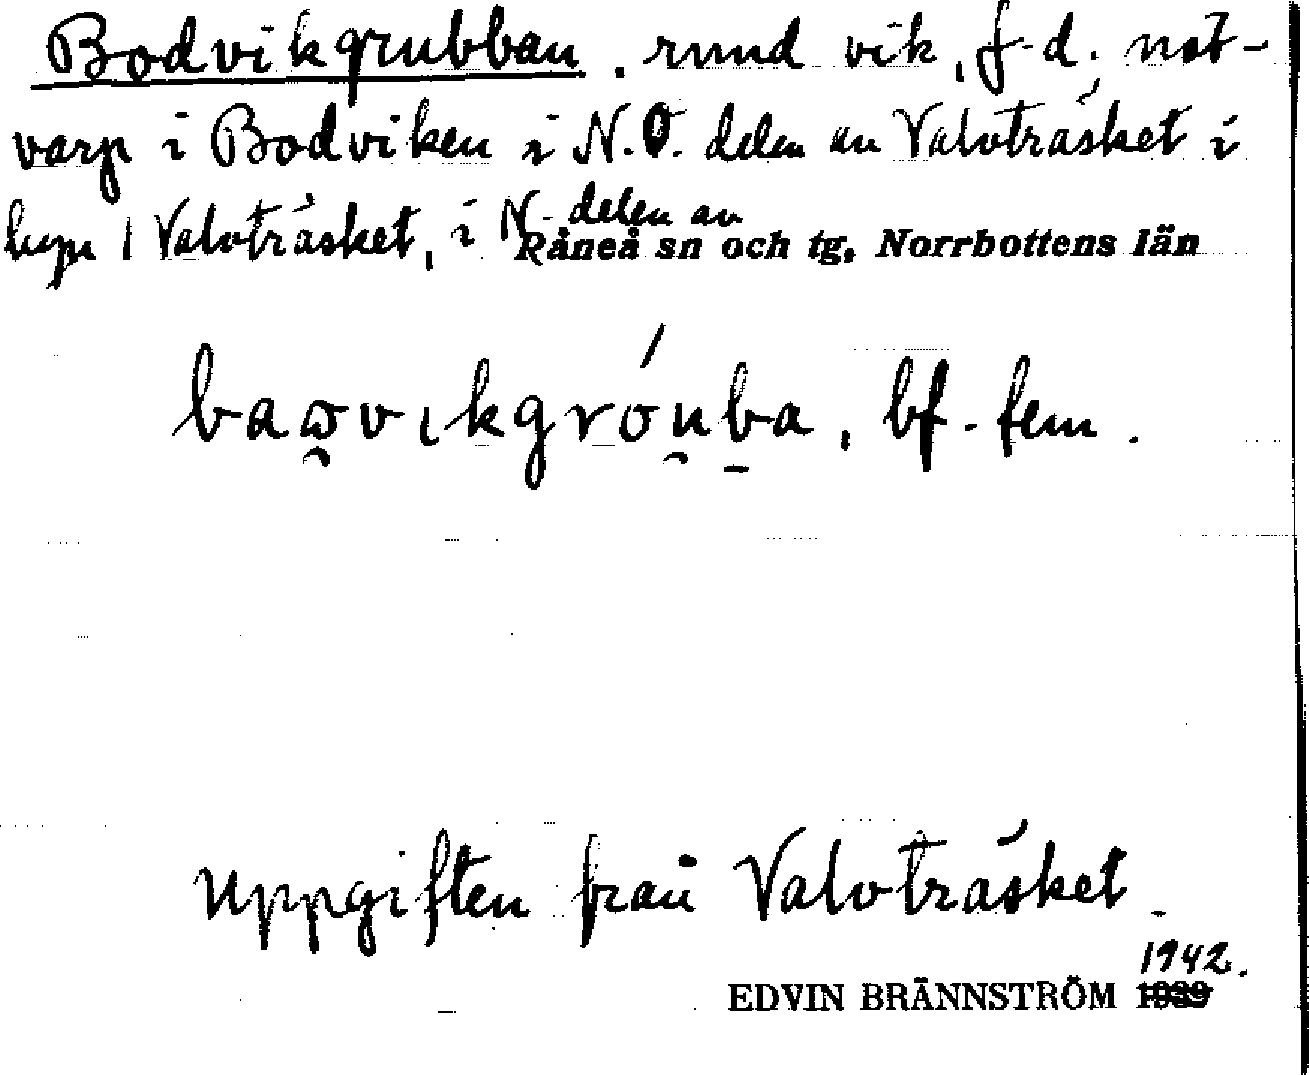 Bodvikgrubban, rund vik, f.d. not-
varp i Bodviken i N.O. delen av Valvträsket i
byn Valvträsket, i N. delen av
Råneå sn och tg, Norrbottens län
bf. fem.
Uppgiften från Valvträsket.
1942.
EDVIN BRÄNNSTRÖM 1939